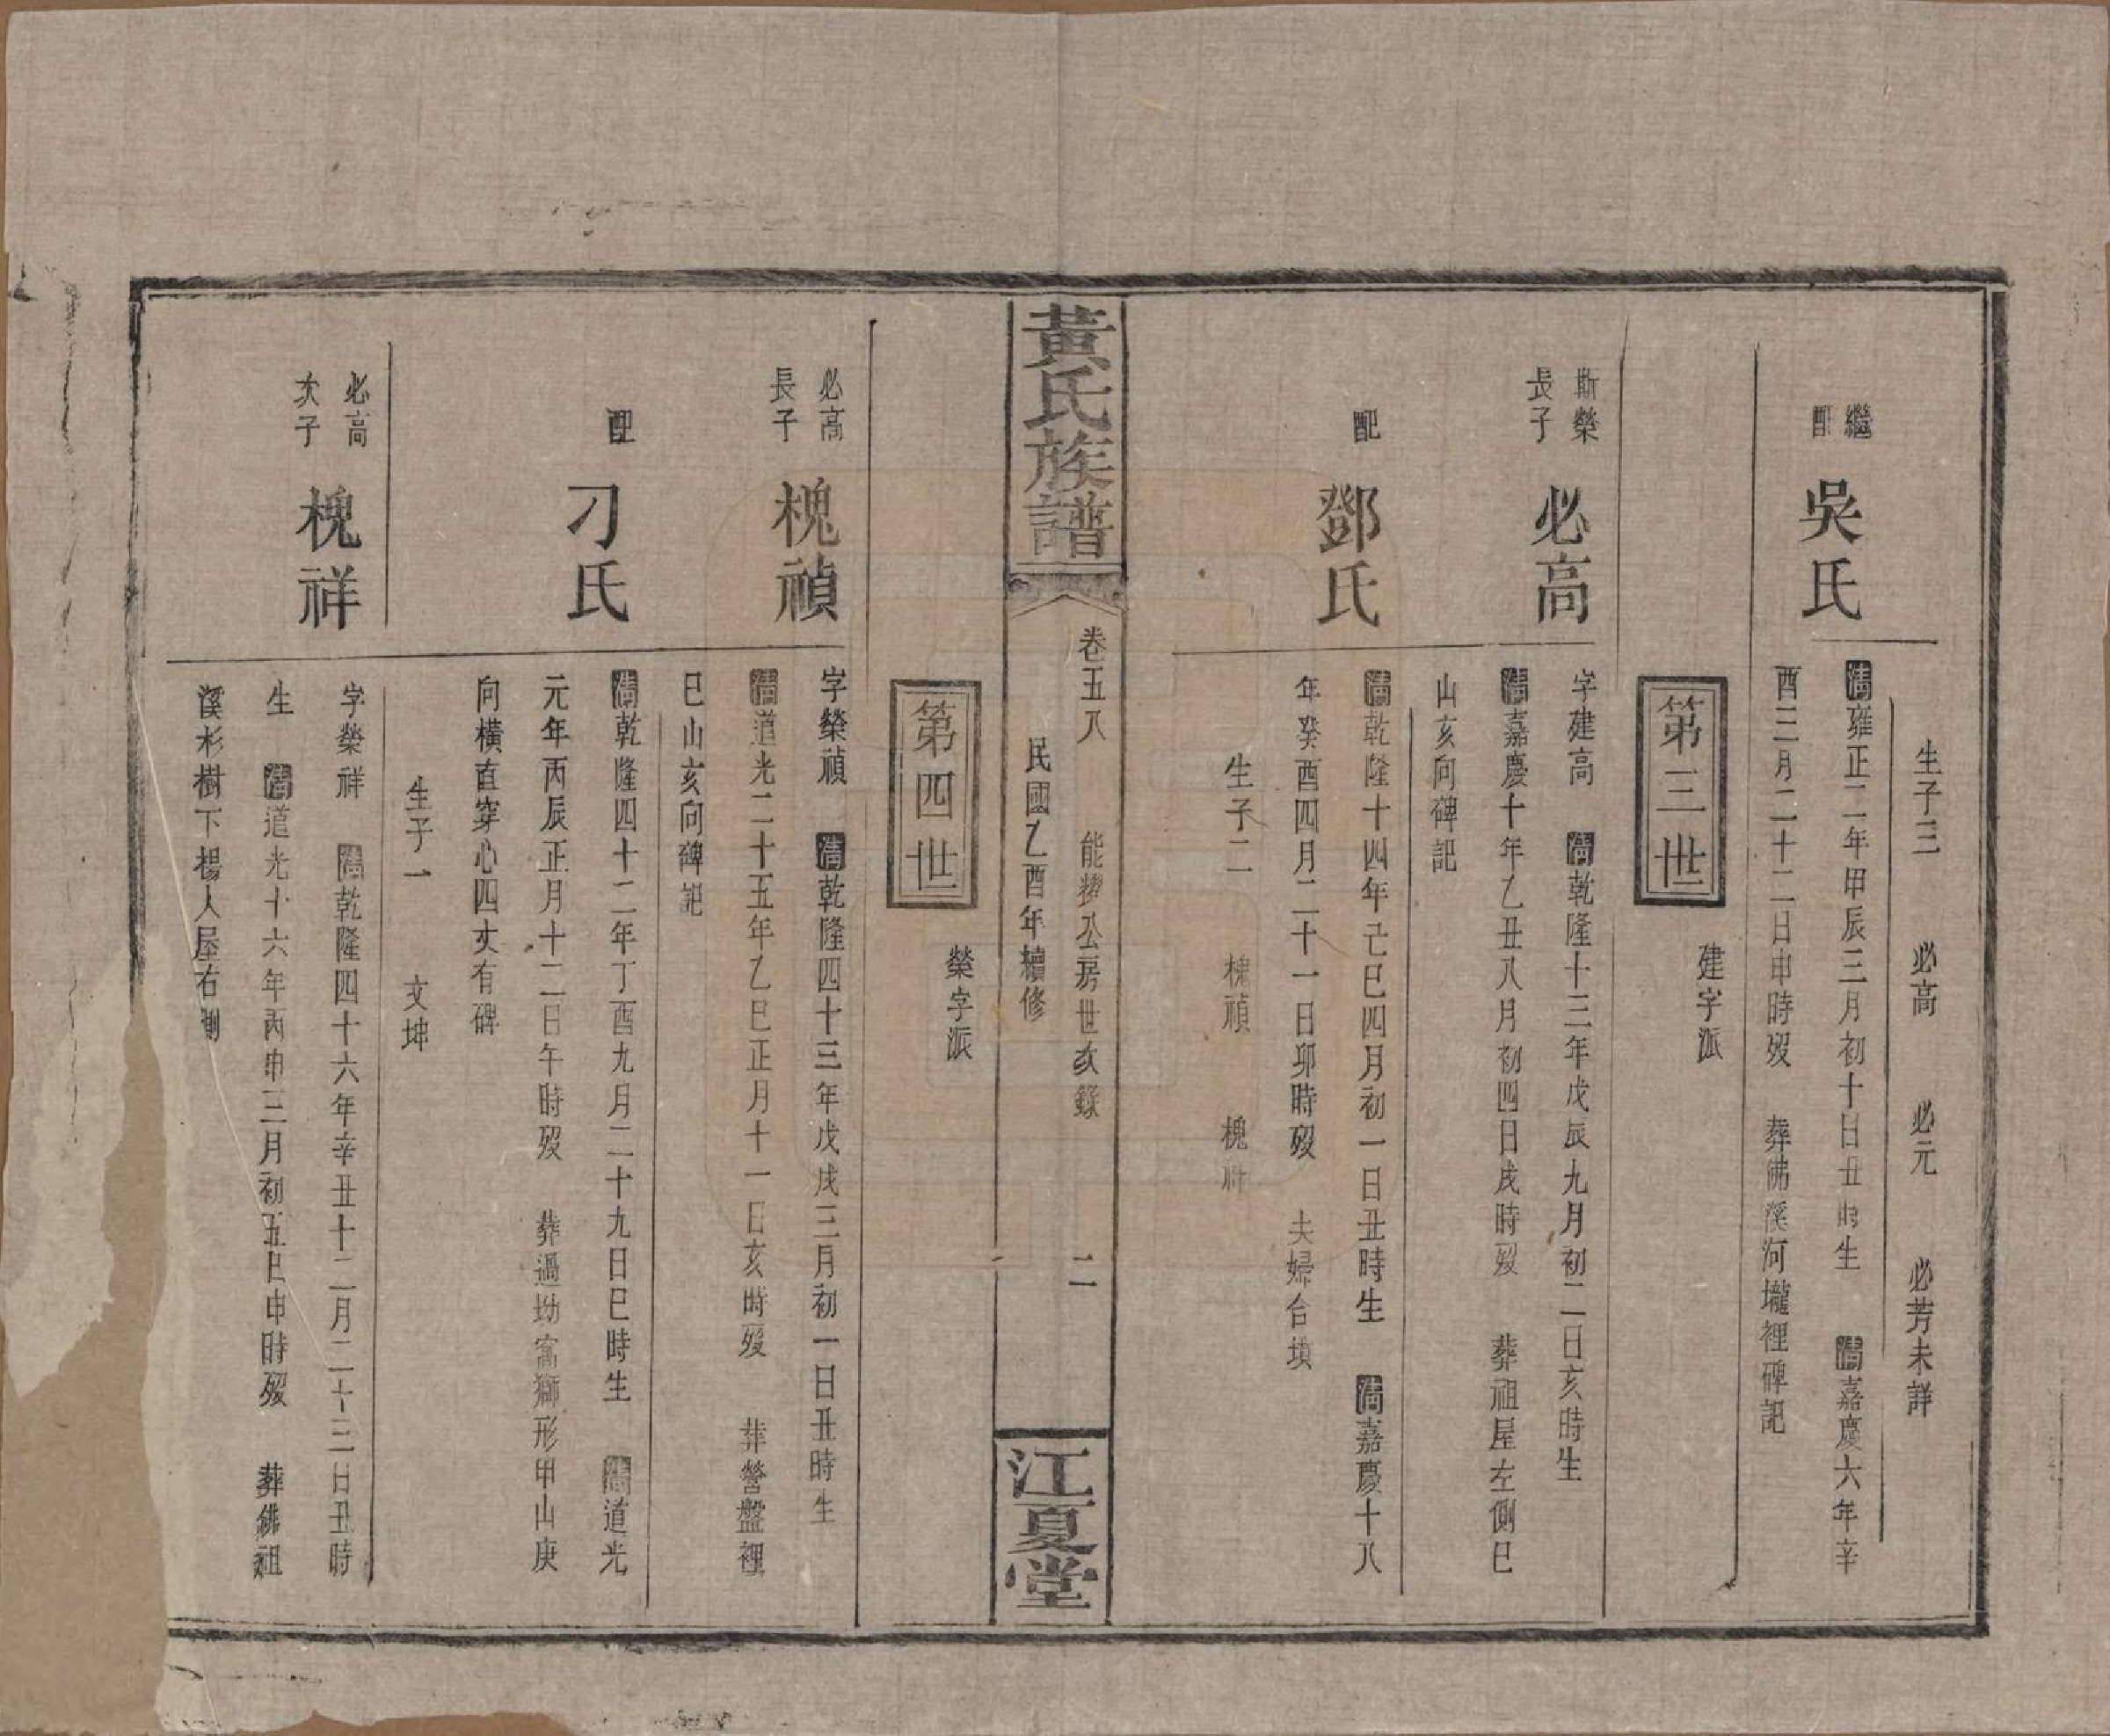 生子三 必高 必元 必芳未詳
繼配 吳氏
清雍正二年甲辰三月初十日丑時生 清嘉慶六年辛
酉三月二十二日申時歿 葬佛溪河壠裡碑記
第三世
建字派
斯榮長子 必高
字建高 清乾隆十三年戊辰九月初二日亥時生
清嘉慶十年乙丑八月初四日戌時歿 葬祖屋左側巳
山亥向碑記
配 鄧氏
清乾隆十四年己巳四月初一日丑時生 清嘉慶十八
年癸酉四月二十一日卯時歿 夫婦合墳
生子二 槐禎 槐祥
黃氏族譜
卷五八 能撰公房世次錄 二
民國乙酉年續修
江夏堂
第四世
榮字派
必高長子 槐禎
字榮禎 清乾隆四十三年戊戌三月初一日丑時生
清道光二十五年乙巳正月十一日亥時歿 葬營盤裡
巳山亥向碑記
配 刁氏
清乾隆四十二年丁酉九月二十九日巳時生 清道光
元年丙辰正月十二日午時歿 葬過坳窩獅形甲山庚
向橫直穿心四丈有碑
生子一 文坤
必高次子 槐祥
字榮祥 清乾隆四十六年辛丑十二月二十三日丑時
生 清道光十六年丙申三月初五日申時歿 葬佛祖
溪杉樹下楊人屋右側